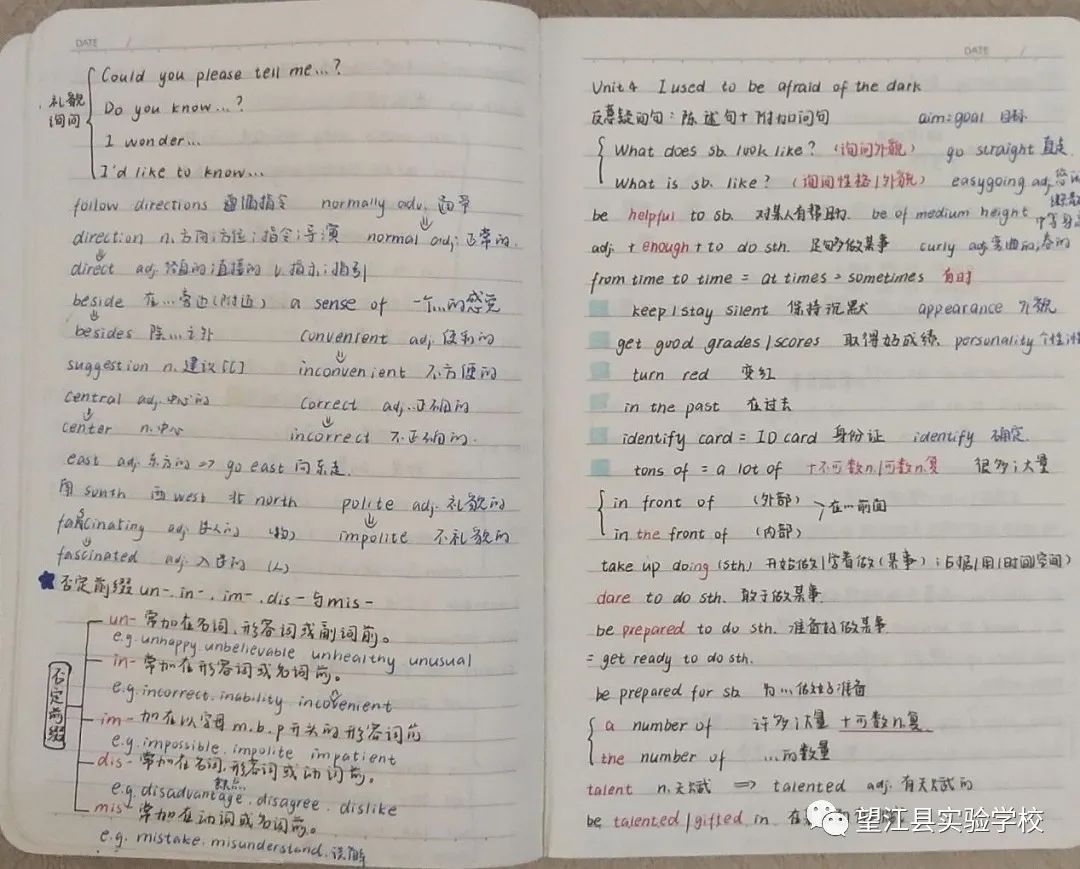 DATE /
Could you please tell me...?
礼貌询问
Do you know...?
I wonder...
I'd like to know...
follow directions 遵循指令 normally adv. 通常
direction n.方向;方位;指令;导演 normal adj:正常的.
direct adj 径直的;直接的 v.指示;指引
beside 在...旁边(附近) a sense of 一个...的感觉
besides 除...之外 convenrent adj.便利的
suggestion n.建议[C] inconvenient 不方便的
central adj.中心的 correct adj.正确的
center n.中心 incorrect 不正确的.
east adj.东方的 => go east 向东走.
南 south 西 west 北 north polite adj.礼貌的
fascinating adj 迷人的 (物) impolite 不礼貌的
fascinated adj.入迷的 (人)
否定前缀un-.in-.im-.dis-与mis-
否定前缀
un-常加在名词、形容词或副词前。
e.g.unhappy unbelievable unhealthy unusual
in-常加在形容词或名词前。
e.g.incorrect.inability incovenient
im-加在以字母m.b.p开头的形容词前
e.g.impossible.impolite impatient
dis-常加在名词,形容词或动词前。
e.g.disadvantage.disagree.dislike
缺点
mis-常加在动词或名词前。
e.g. mistake.misunderstand.误解
DATE /
Unit 4 I used to be afraid of the dark
反意疑问句:陈述句+附加问句 aim:goal 目标
What does sb. look like? (询问外貌) go straight 直走.
What is sb. like? (询问性格/外貌) easygoing adj.
be helpful to sb. 对某人有帮助的. be of medium height 中等身高
adj. + enough + to do sth. 足够...做某事 curly adj.弯曲的,卷的
from time to time = at times = sometimes 有时
keep / stay silent 保持沉默 appearance 外貌
get good grades / scores 取得好成绩. personality 个性
turn red 变红
in the past 在过去
identify card = ID card 身份证 identify 确定.
tons of = a lot of +不可数n./可数n.复 很多;大量
in front of (外部) 在...前面
in the front of (内部)
take up doing (sth) 开始做/学着做(某事);占据/用(时间空间)
dare to do sth. 敢于做某事.
be prepared to do sth. 准备好做某事
= get ready to do sth.
be prepared for sb. 为...做好准备
a number of 许多;大量 +可数n.复
the number of ...的数量
talent n.天赋 => talented adj.有天赋的
be talented / gifted in 在
望江县实验学校